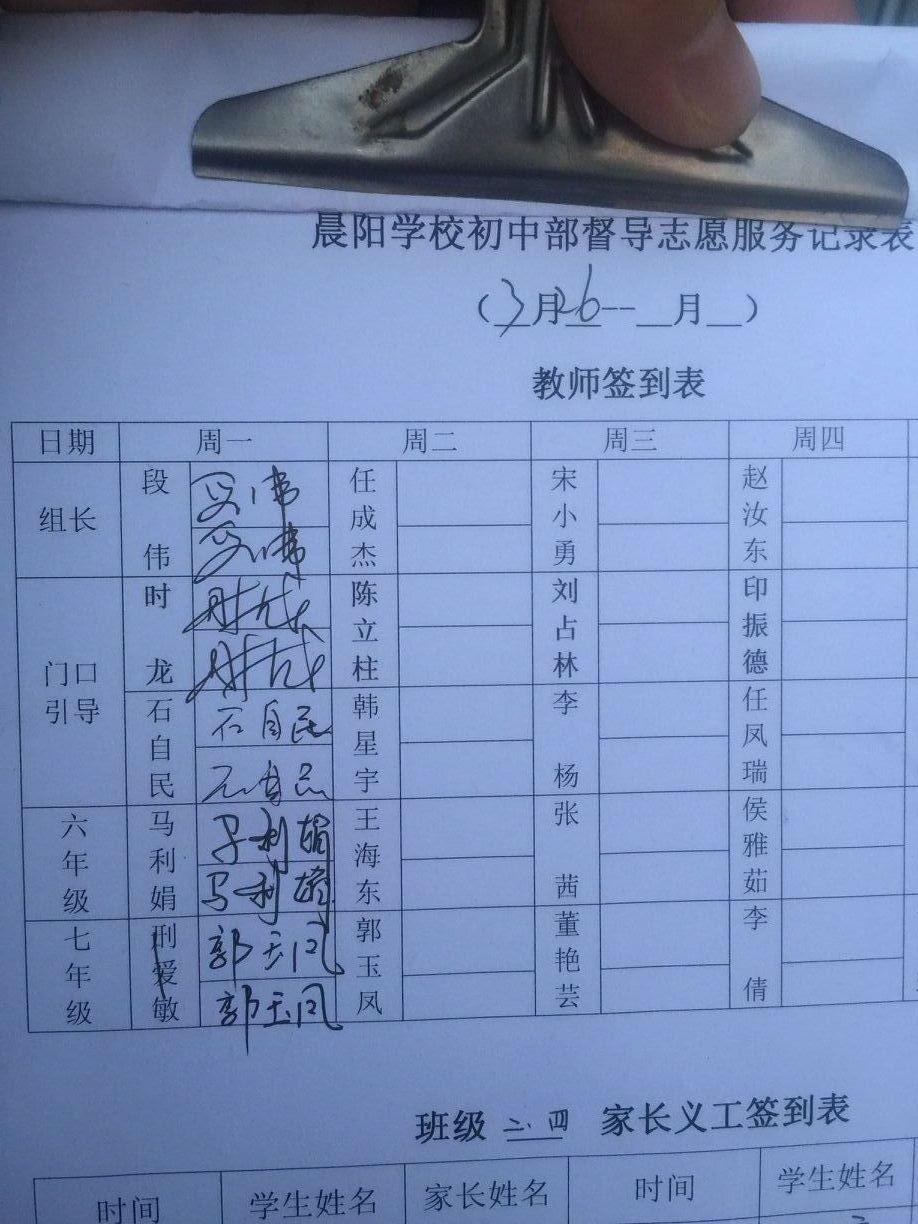 晨阳学校初中部督导志愿服务记录表
（3月26--__月__）
教师签到表
日期 周一 周二 周三 周四
组长 段伟 段伟 任成杰 宋小勇 赵汝东
段伟
门口引导 时龙 时龙 陈立柱 刘占林 印振德
时龙
石自民 石自民 韩星宇 李杨 任凤瑞
石自民
六年级 马利娟 马利娟 王海东 张茜 侯雅茹
马利娟
七年级 刑爱敏 郭玉凤 郭玉凤 董艳芸 李倩
郭玉凤
班级 二.四 家长义工签到表
时间 学生姓名 家长姓名 时间 学生姓名